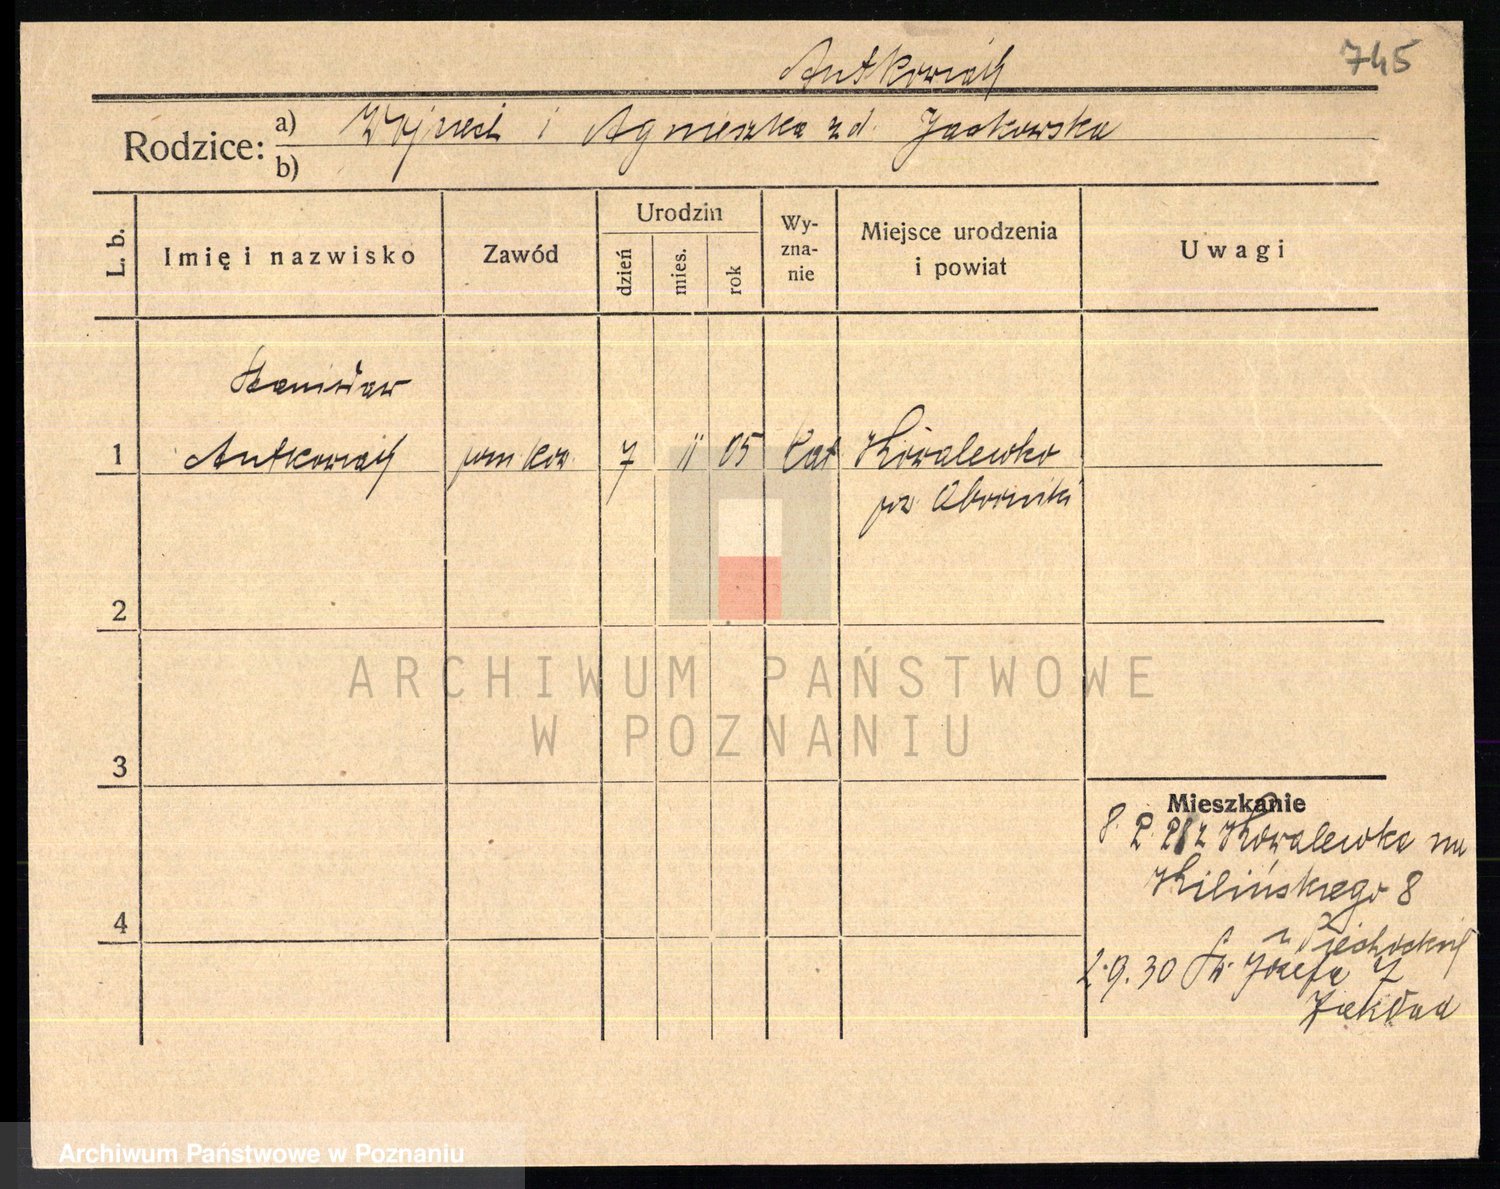 Antkowiak
745
Rodzice:
a) Wojciech i Agnieszka z d. Jaskowska
b)
L. b.
Imię i nazwisko
Zawód
Urodzin
dzień
mies.
rok
Wy-
zna-
nie
Miejsce urodzenia
i powiat
Uwagi
Stanisław
1 Antkowiak 7 11 05 kat Kowalewko
pow. Oborniki
2
3
4
Mieszkanie
8. 2. z Kowalewka na
Kilińskiego 8
2.9.30 Św. Józefa 7
Zakład
ARCHIWUM PAŃSTWOWE
W POZNANIU
Archiwum Państwowe w Poznaniu